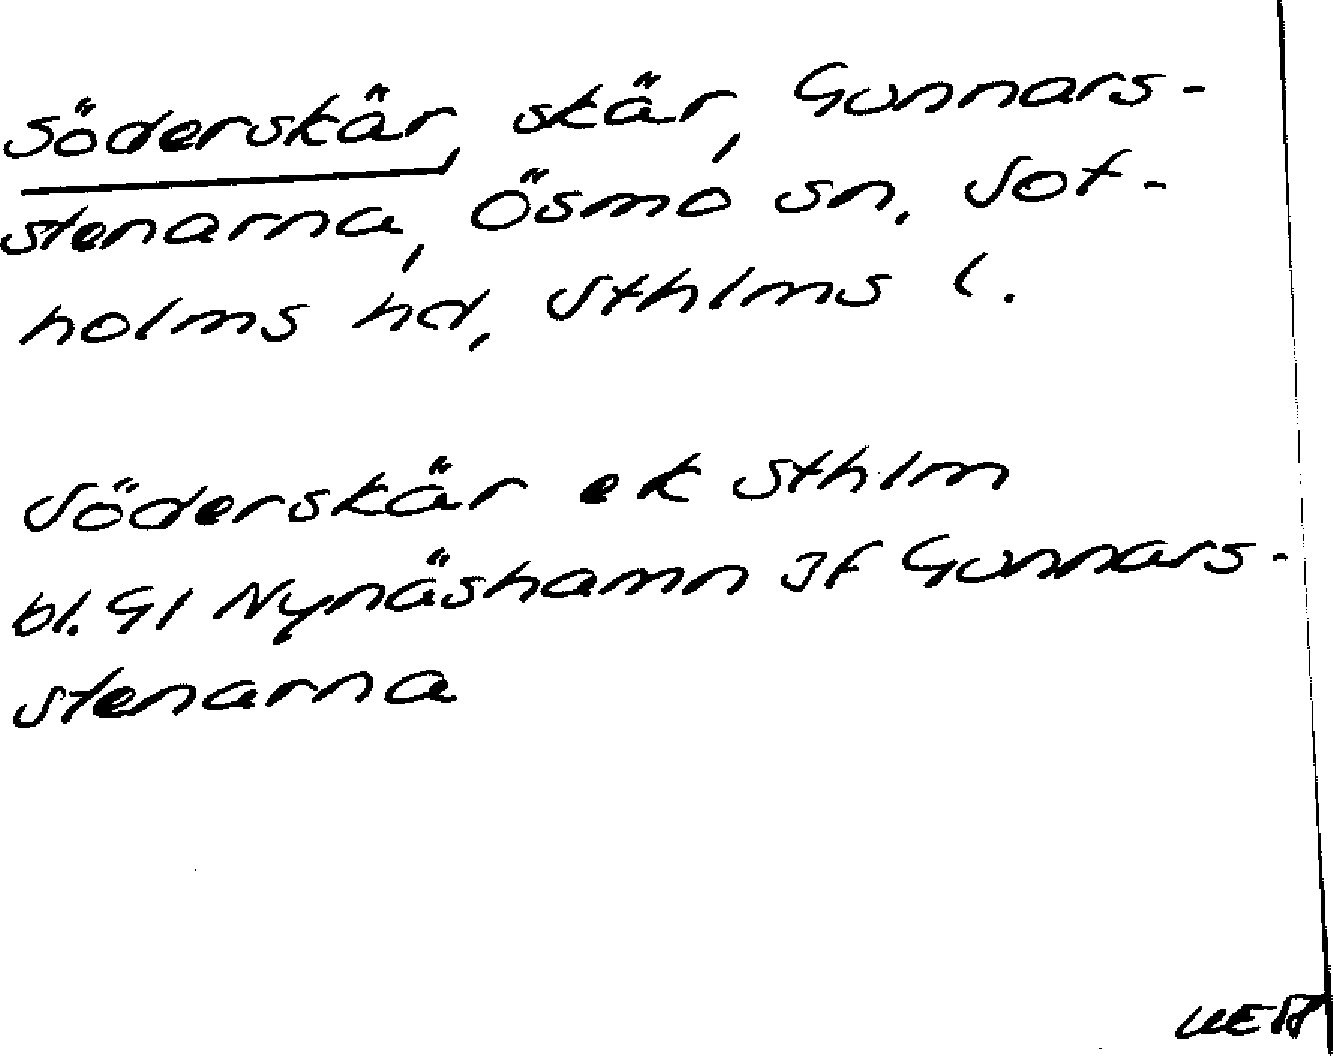 Söderskär, skär, Gunnars-
stenarna, Ösmo sn. Sot-
holms hd, Sthlms l.
Söderskär ek Sthlm
bl. 91 Nynäshamn Jf Gunnars-
stenarna